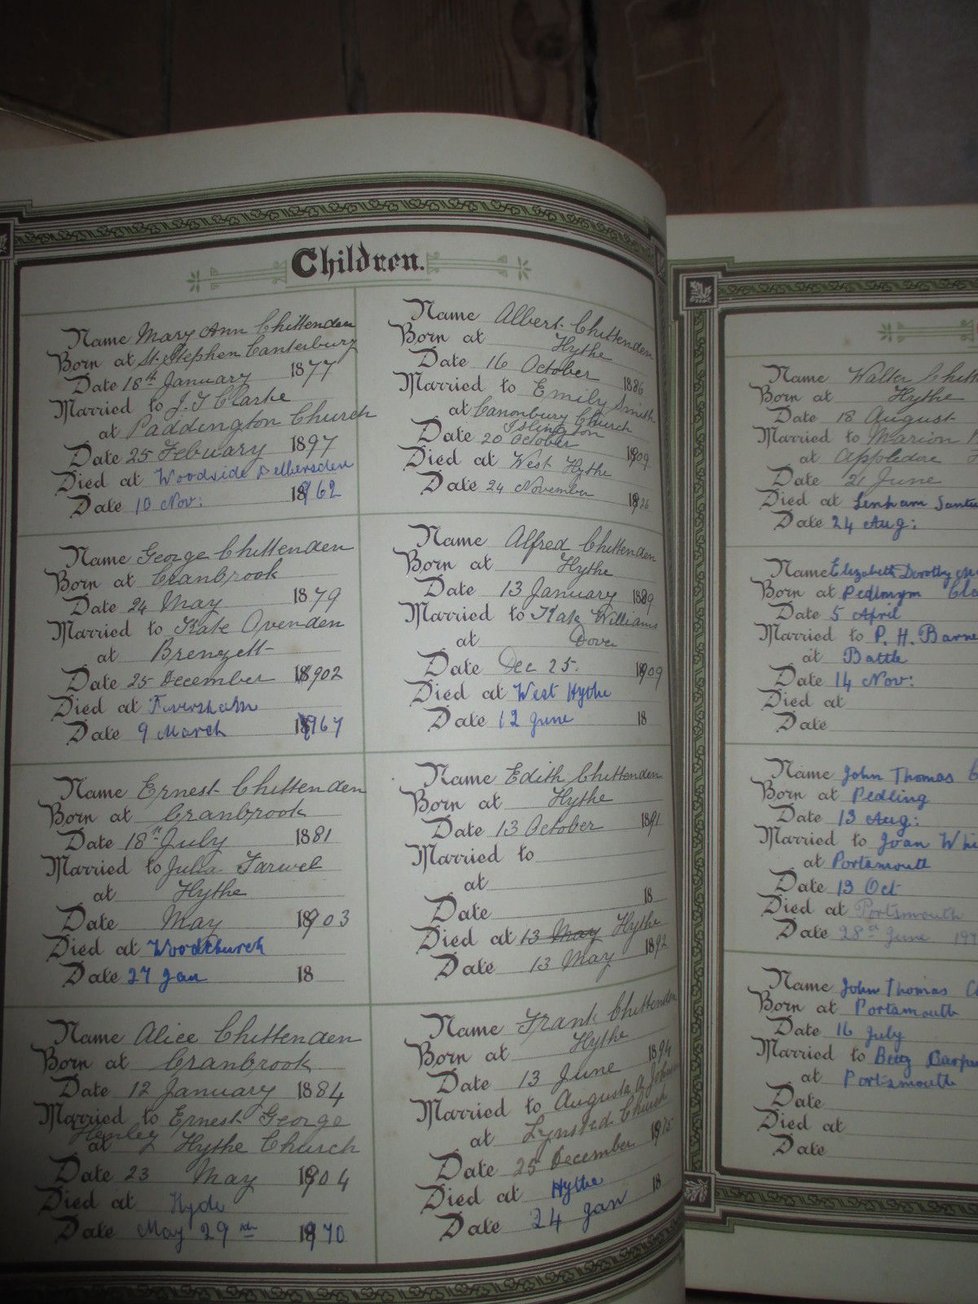 Children.
Name Mary Ann Chittenden
Born at St. Stephen Canterbury
Date 18th January 1877
Married to J. T Clarke
at Paddington Church
Date 25 February 1897
Died at Woodside
Date 10 Nov: 1962
Name George Chittenden
Born at Cranbrook
Date 24 May 1879
Married to Kate Ovenden
at Brenzett
Date 25 December 1902
Died at Faversham
Date 9 March 1967
Name Ernest Chittenden
Born at Cranbrook
Date 18th July 1881
Married to Julia Farwel
at Hythe
Date May 1903
Died at Woodchurch
Date 27 Jan 18
Name Alice Chittenden
Born at Cranbrook
Date 12 January 1884
Married to Ernest George
Henley
at Hythe Church
Date 23 May 1904
Died at Hyde
Date May 29 1970
Name Albert Chittenden
Born at Hythe
Date 16 October 1886
Married to Emily Smith
at Canonbury Church
Islington
Date 20 October 1909
Died at West Hythe
Date 24 November 1926
Name Alfred Chittenden
Born at Hythe
Date 13 January 1889
Married to Kate Williams
at Dover
Date Dec 25. 1909
Died at West Hythe
Date 12 June 18
Name Edith Chittenden
Born at Hythe
Date 13 October 1891
Married to
at
Date 18
Died at 13 May Hythe
Date 13 May 1892
Name Frank Chittenden
Born at Hythe
Date 13 June 1894
Married to Augusta
at Lynsted Church
Date 25 December 1915
Died at Hythe 18
Date 24 Jan
Name Walter
Born at Hythe
Date 18 August
Married to Marion
at Appledore
Date 21 June
Died at Lenham
Date 24 Aug:
Name Elizabeth Dorothy
Born at
Date 5 April
Married to P. H. Barne
at Battle
Date 14 Nov:
Died at
Date
Name John Thomas
Born at Pedling
Date 13 Aug:
Married to Joan
at Portsmouth
Date 19 Oct
Died at Portsmouth
Date 28th June
Name John Thomas
Born at Portsmouth
Date 16 July
Married to
at Portsmouth
Date
Died at
Date